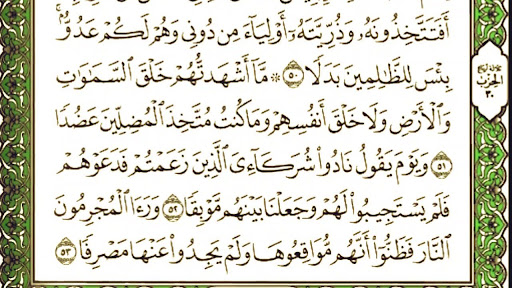 أَفَتَتَّخِذُونَهُۥ وَذُرِّيَّتَهُۥٓ أَوْلِيَآءَ مِن دُونِى وَهُمْ لَكُمْ عَدُوٌّۢ
بِئْسَ لِلظَّٰلِمِينَ بَدَلًا ٥٠ ۞ مَّآ أَشْهَدتُّهُمْ خَلْقَ ٱلسَّمَٰوَٰتِ
وَٱلْأَرْضِ وَلَا خَلْقَ أَنفُسِهِمْ وَمَا كُنتُ مُتَّخِذَ ٱلْمُضِلِّينَ عَضُدًا
٥١ وَيَوْمَ يَقُولُ نَادُوا۟ شُرَكَآءِىَ ٱلَّذِينَ زَعَمْتُمْ فَدَعَوْهُمْ
فَلَمْ يَسْتَجِيبُوا۟ لَهُمْ وَجَعَلْنَا بَيْنَهُم مَّوْبِقًا ٥٢ وَرَءَا ٱلْمُجْرِمُونَ
ٱلنَّارَ فَظَنُّوٓا۟ أَنَّهُم مُّوَاقِعُوهَا وَلَمْ يَجِدُوا۟ عَنْهَا مَصْرِفًا ٥٣
الحزب
٣٠